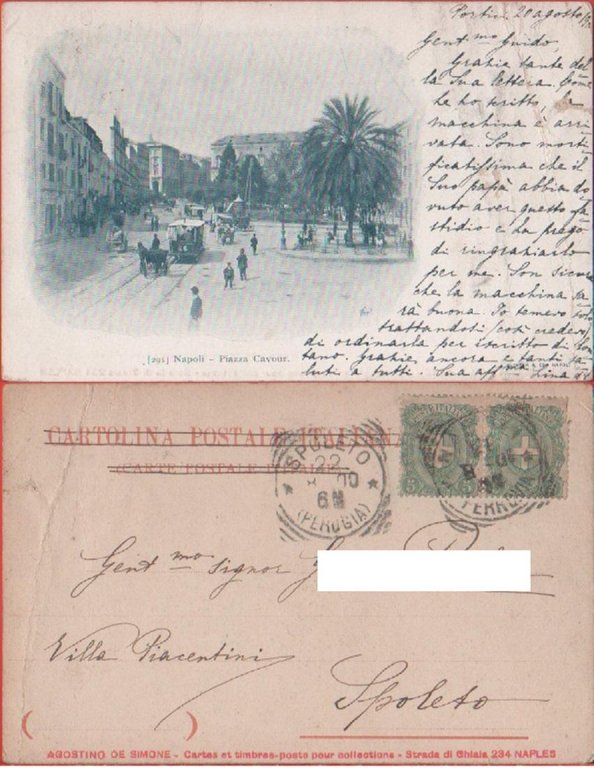 Portici 20 agosto
Gent.mo Guido,
Grazie tante del
la Sua lettera. Come
he ho scritto, la
macchina è arri
vata. Sono morti
ficatissima che il
Suo papà abbia do
vuto aver questo fa
stidio e La prego
di ringraziarlo
per me. Son sicura
che la macchina sa
rà buona. Io temevo
trattandosi (così credevo)
di ordinarla per iscritto di lon
tano. Grazie, ancora e tanti sa
luti a tutti. Sua aff. Lina
[291] Napoli - Piazza Cavour.
CARTOLINA POSTALE ITALIANA
(CARTE POSTALE
SPOLETO
22
00
6M
(PERUGIA)
5
5
Gent.mo Signor G
Villa Piacentini
Spoleto
AGOSTINO DE SIMONE - Cartes et timbres-poste pour collections - Strada di Chiaia 234 NAPLES